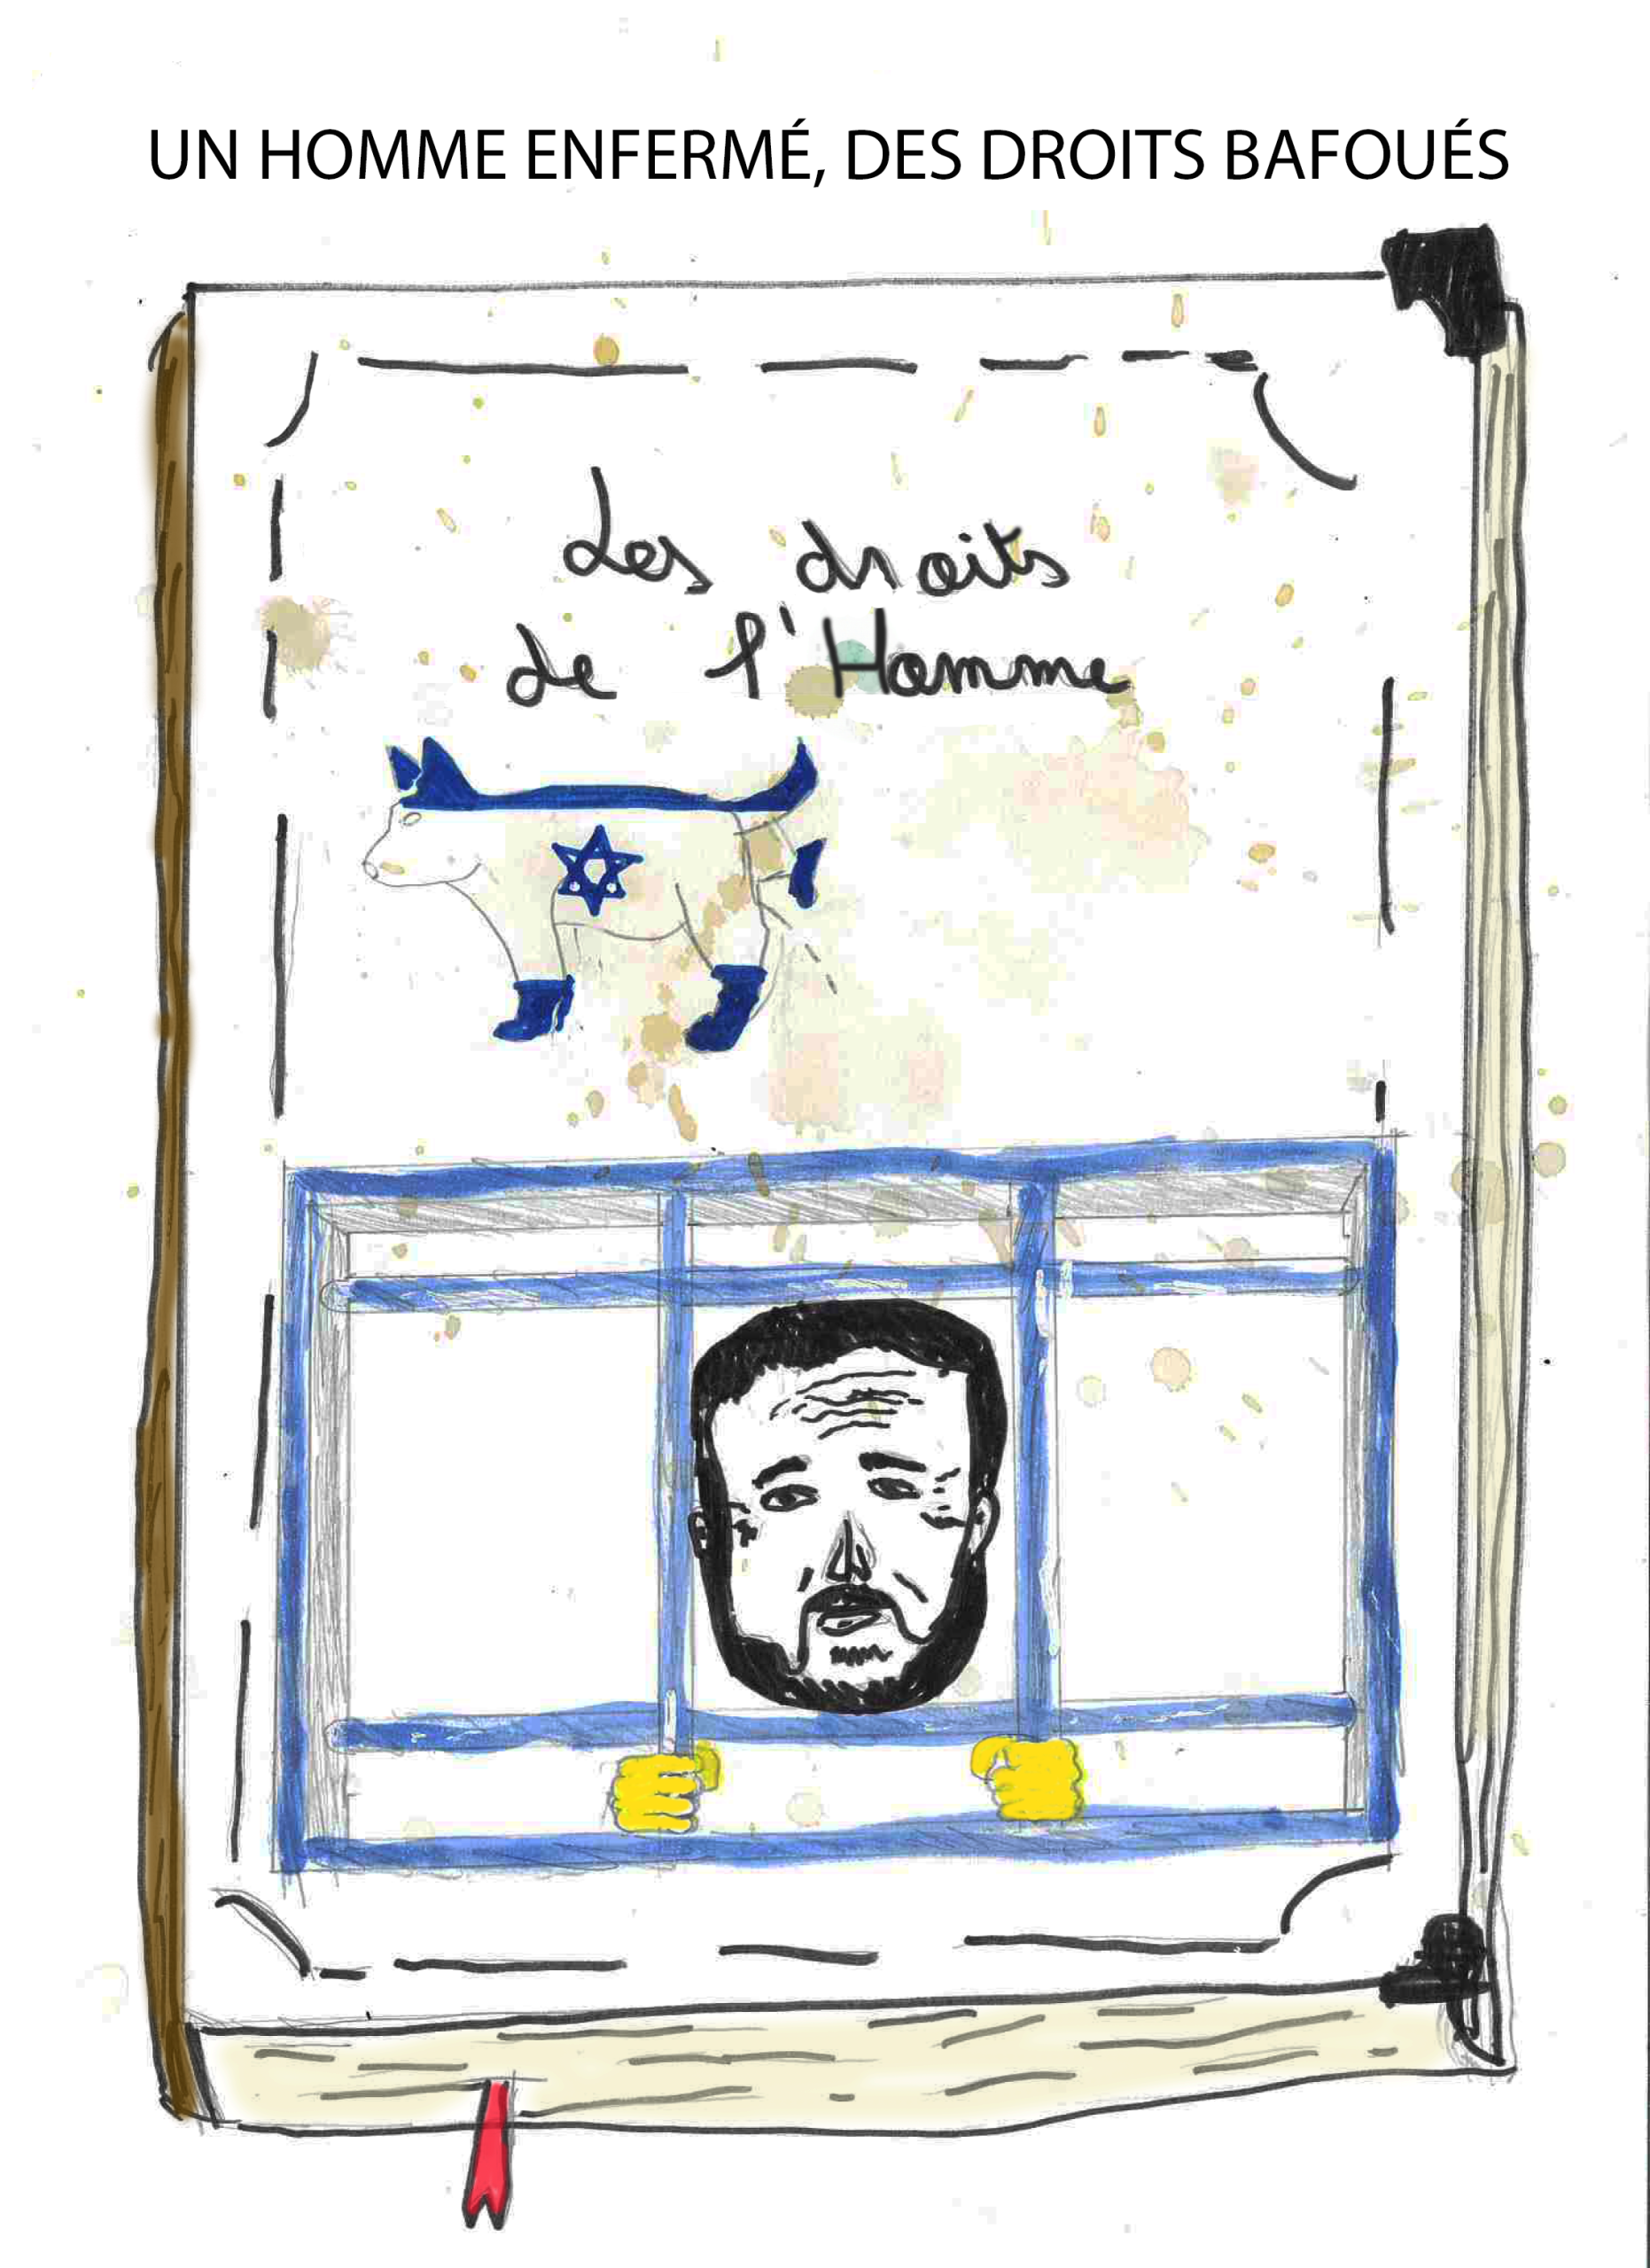 UN HOMME ENFERMÉ, DES DROITS BAFOUÉS
Les droits
de l'Homme